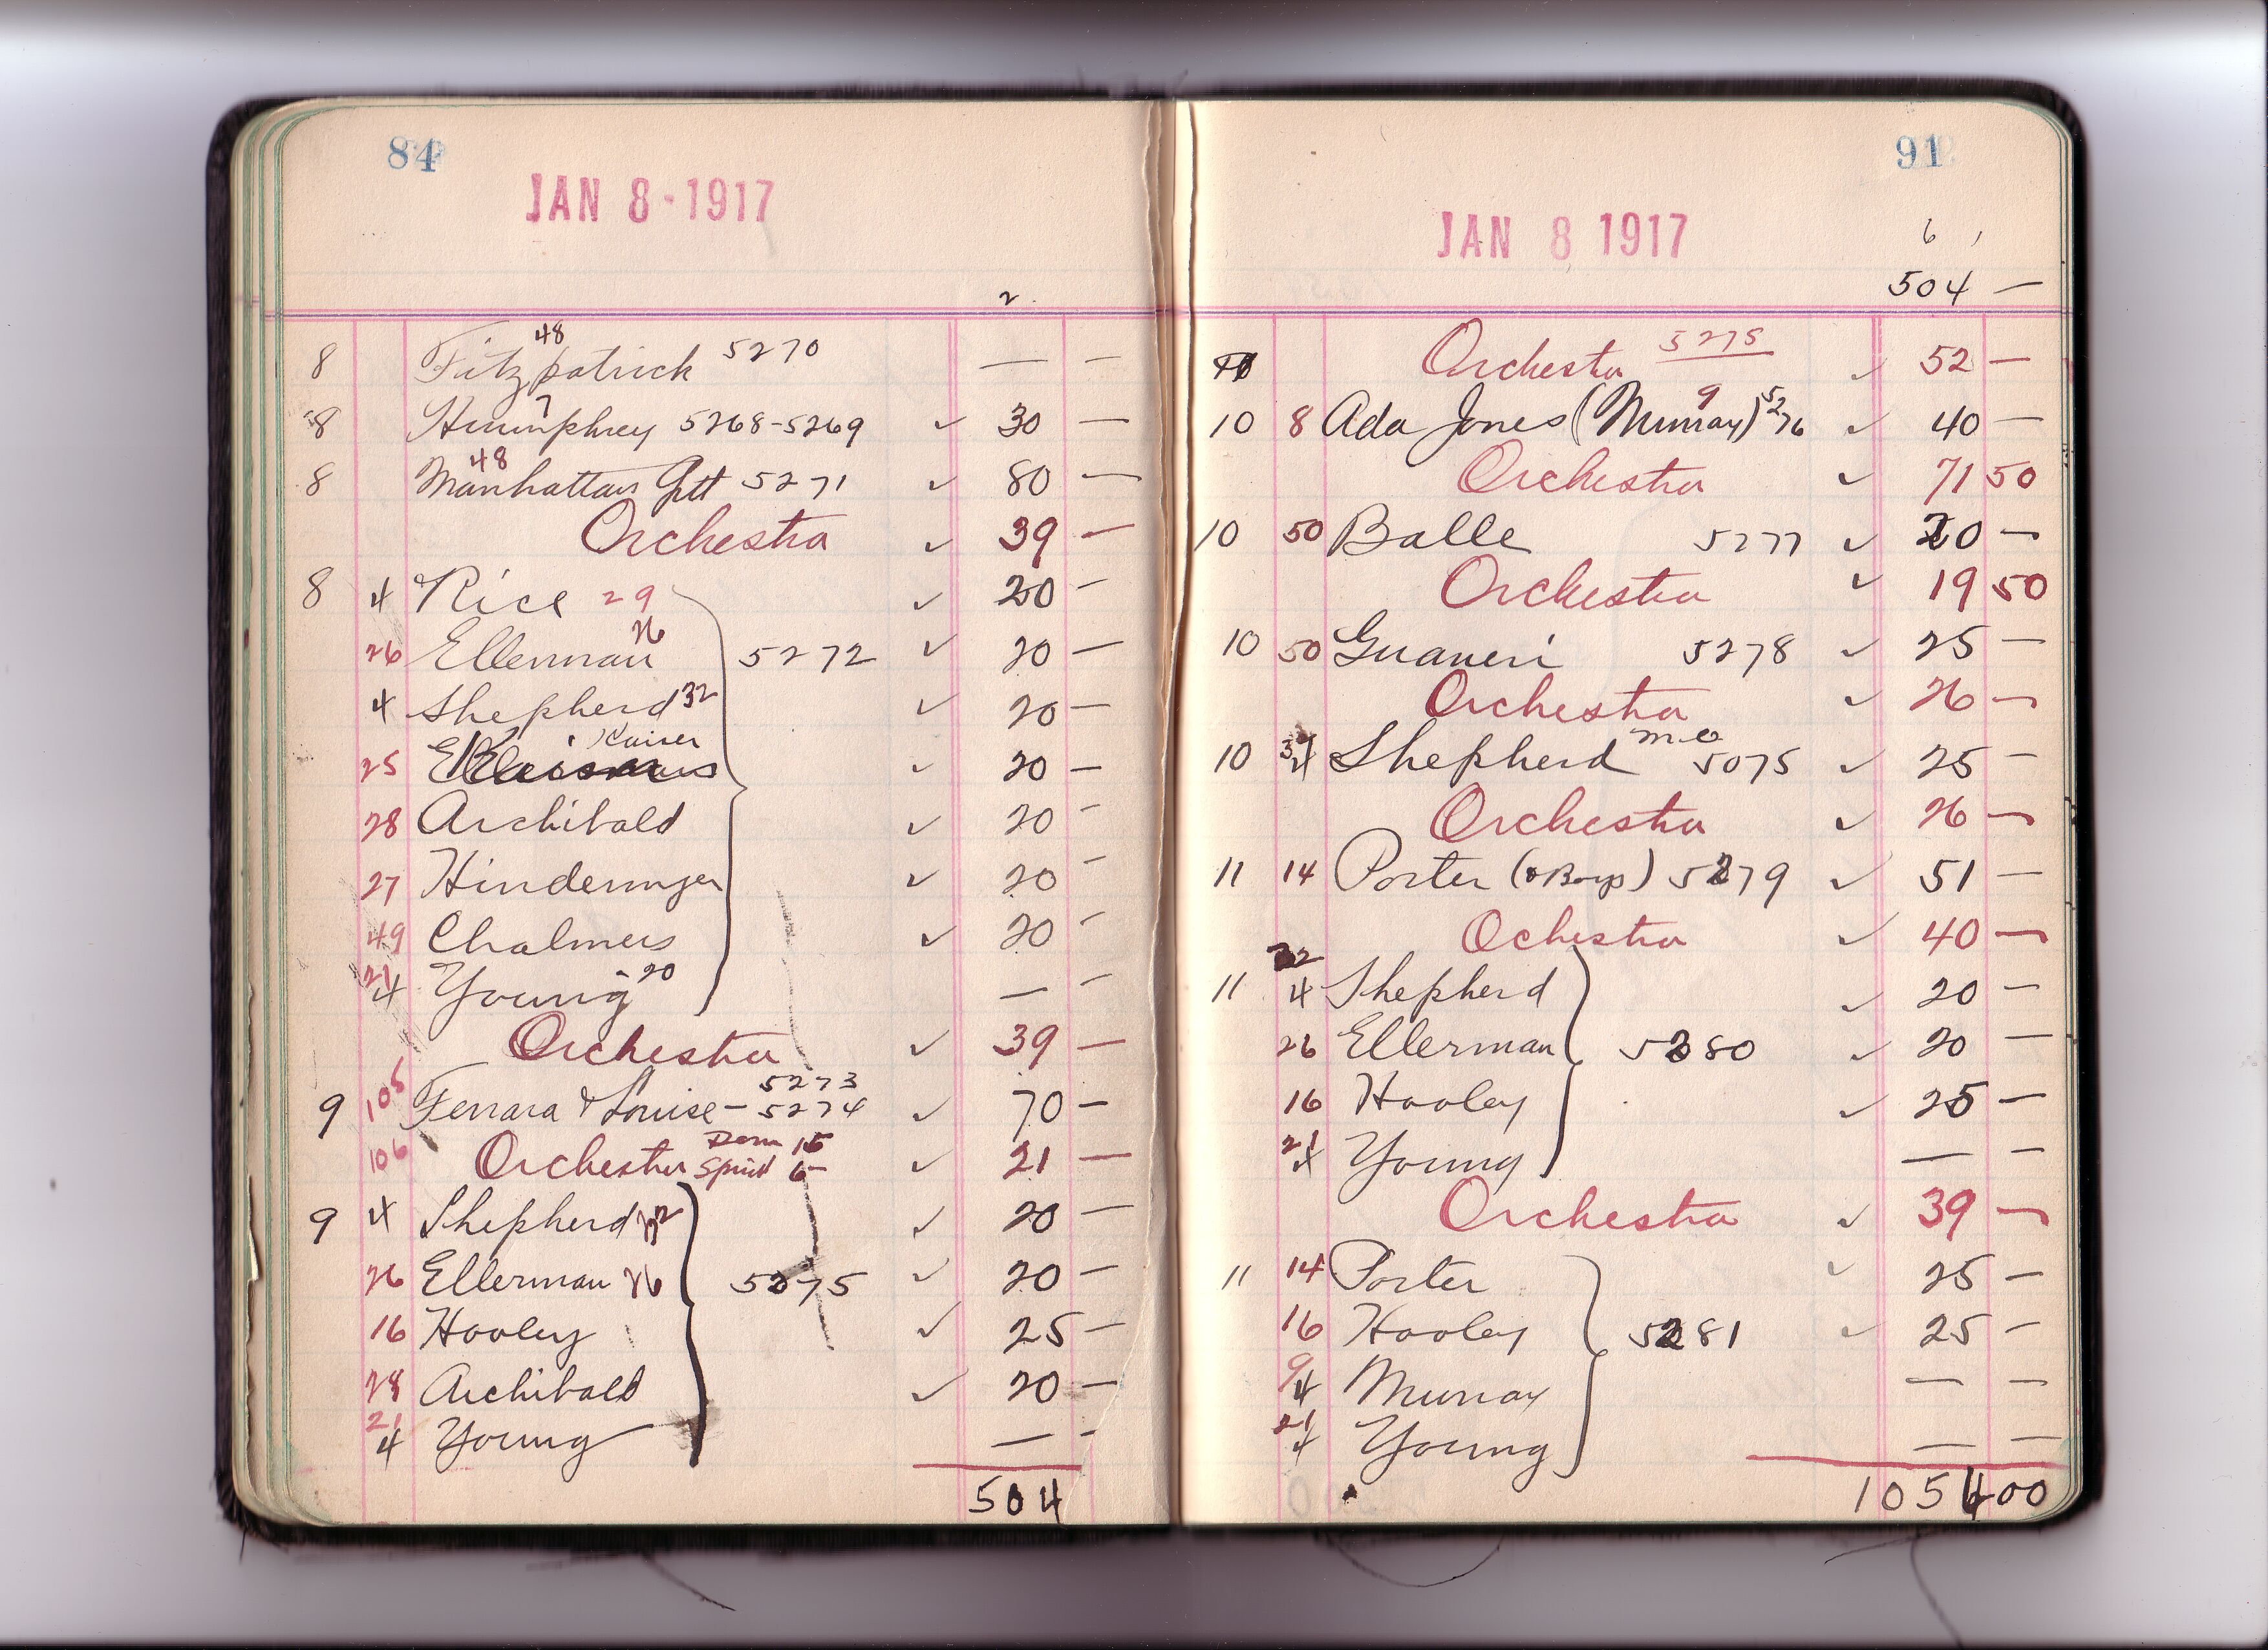 84
JAN 8-1917
2
48
8 Fitzpatrick 5270 — —
7
8 Humphrey 5268-5269 ✓ 30 —
48
8 Manhattan Qtt 5271 ✓ 80 —
Orchestra ✓ 39 —
8 4 Rice 29 ✓ 20 —
26 Ellerman 26 5272 ✓ 20 —
4 Shepherd 32 ✓ 20 —
Kaiser
25 ✓ 20 —
28 Archibald ✓ 20 —
27 Hindermyer ✓ 20 —
49 Chalmers ✓ 20 —
21
4 Young 20 — —
Orchestra ✓ 39 —
5273
9 105 Ferrara & Louise — 5274 ✓ 70 —
106 Orchestra Dom 15 ✓ 21 —
Spirit 6 —
9 4 Shepherd 32 ✓ 20 —
26 Ellerman 26 5275 ✓ 20 —
16 Hooley ✓ 25 —
28 Archibald ✓ 20 —
21
4 Young — —
504
91
JAN 8 1917
6
504 —
Orchestra 5275 ✓ 52 —
10 8 Ada Jones (Murray) 9 5276 ✓ 40 —
Orchestra ✓ 71 50
10 50 Balle 5277 ✓ 20 —
Orchestra ✓ 19 50
10 50 Guaneri 5278 ✓ 25 —
Orchestra ✓ 26 —
10 32 4 Shepherd 5075 ✓ 25 —
Orchestra ✓ 26 —
11 14 Porter (& Boys) 5279 ✓ 51 —
Ochestra ✓ 40 —
32
11 4 Shepherd ✓ 20 —
26 Ellerman 5280 ✓ 20 —
16 Hooley ✓ 25 —
21
4 Young — —
Orchestra ✓ 39 —
11 14 Porter ✓ 25 —
16 Hooley 5281 ✓ 25 —
9
4 Murray — —
21
4 Young — —
1054 00